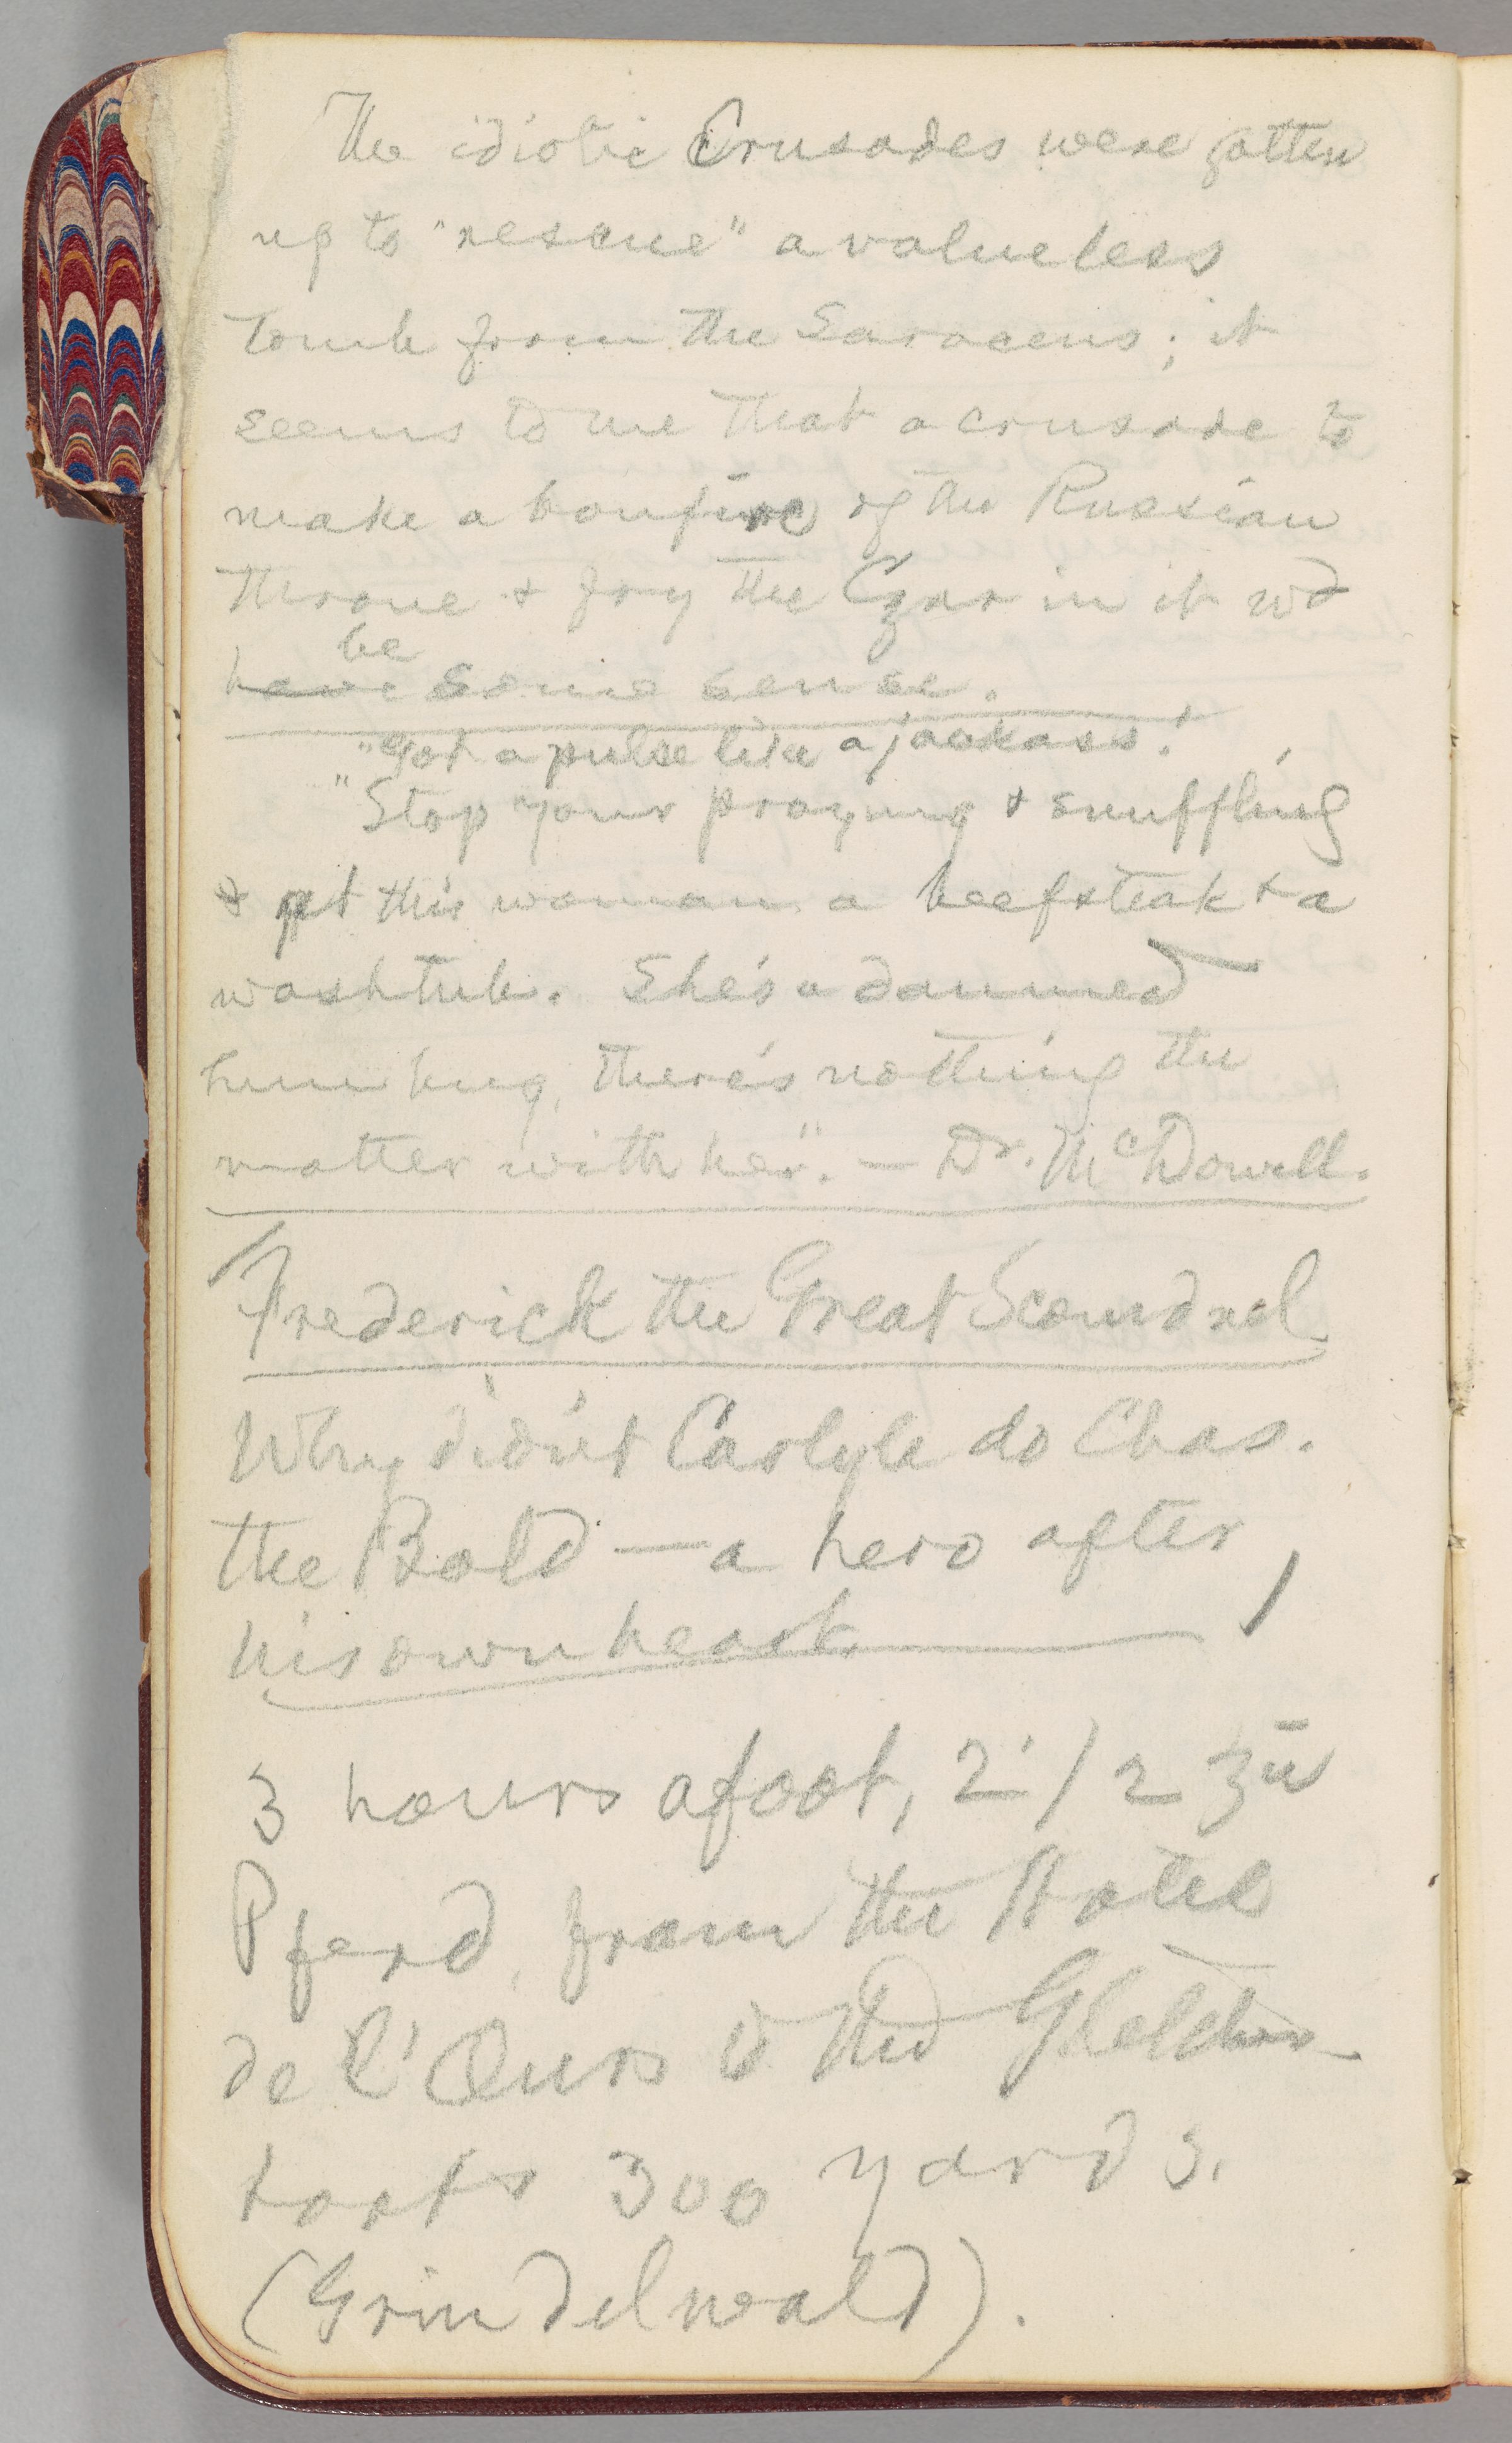 The idiotic Crusades were gotten
up to "rescue" a valueless
tomb from the Saracens; it
seems to me that a crusade to
make a bonfire of the Russian
throne & fry the Czar in it wd
be
have some sense.
"Got a pulse like a jackass!
"Stop your praying & snuffling
& get this woman a beefsteak & a
washtub. She's a damned
humbug, there's nothing the
matter with her". — Dr. McDowell.
Frederick the Great Scoundrel.
Why didn't Carlyle do Chas.
the Bold — a hero after
his own heart.
3 hours afoot, 2 1/2 zu
Pferd, from the Hotel
de l'Ours to the
300 yards.
(Grindelwald).